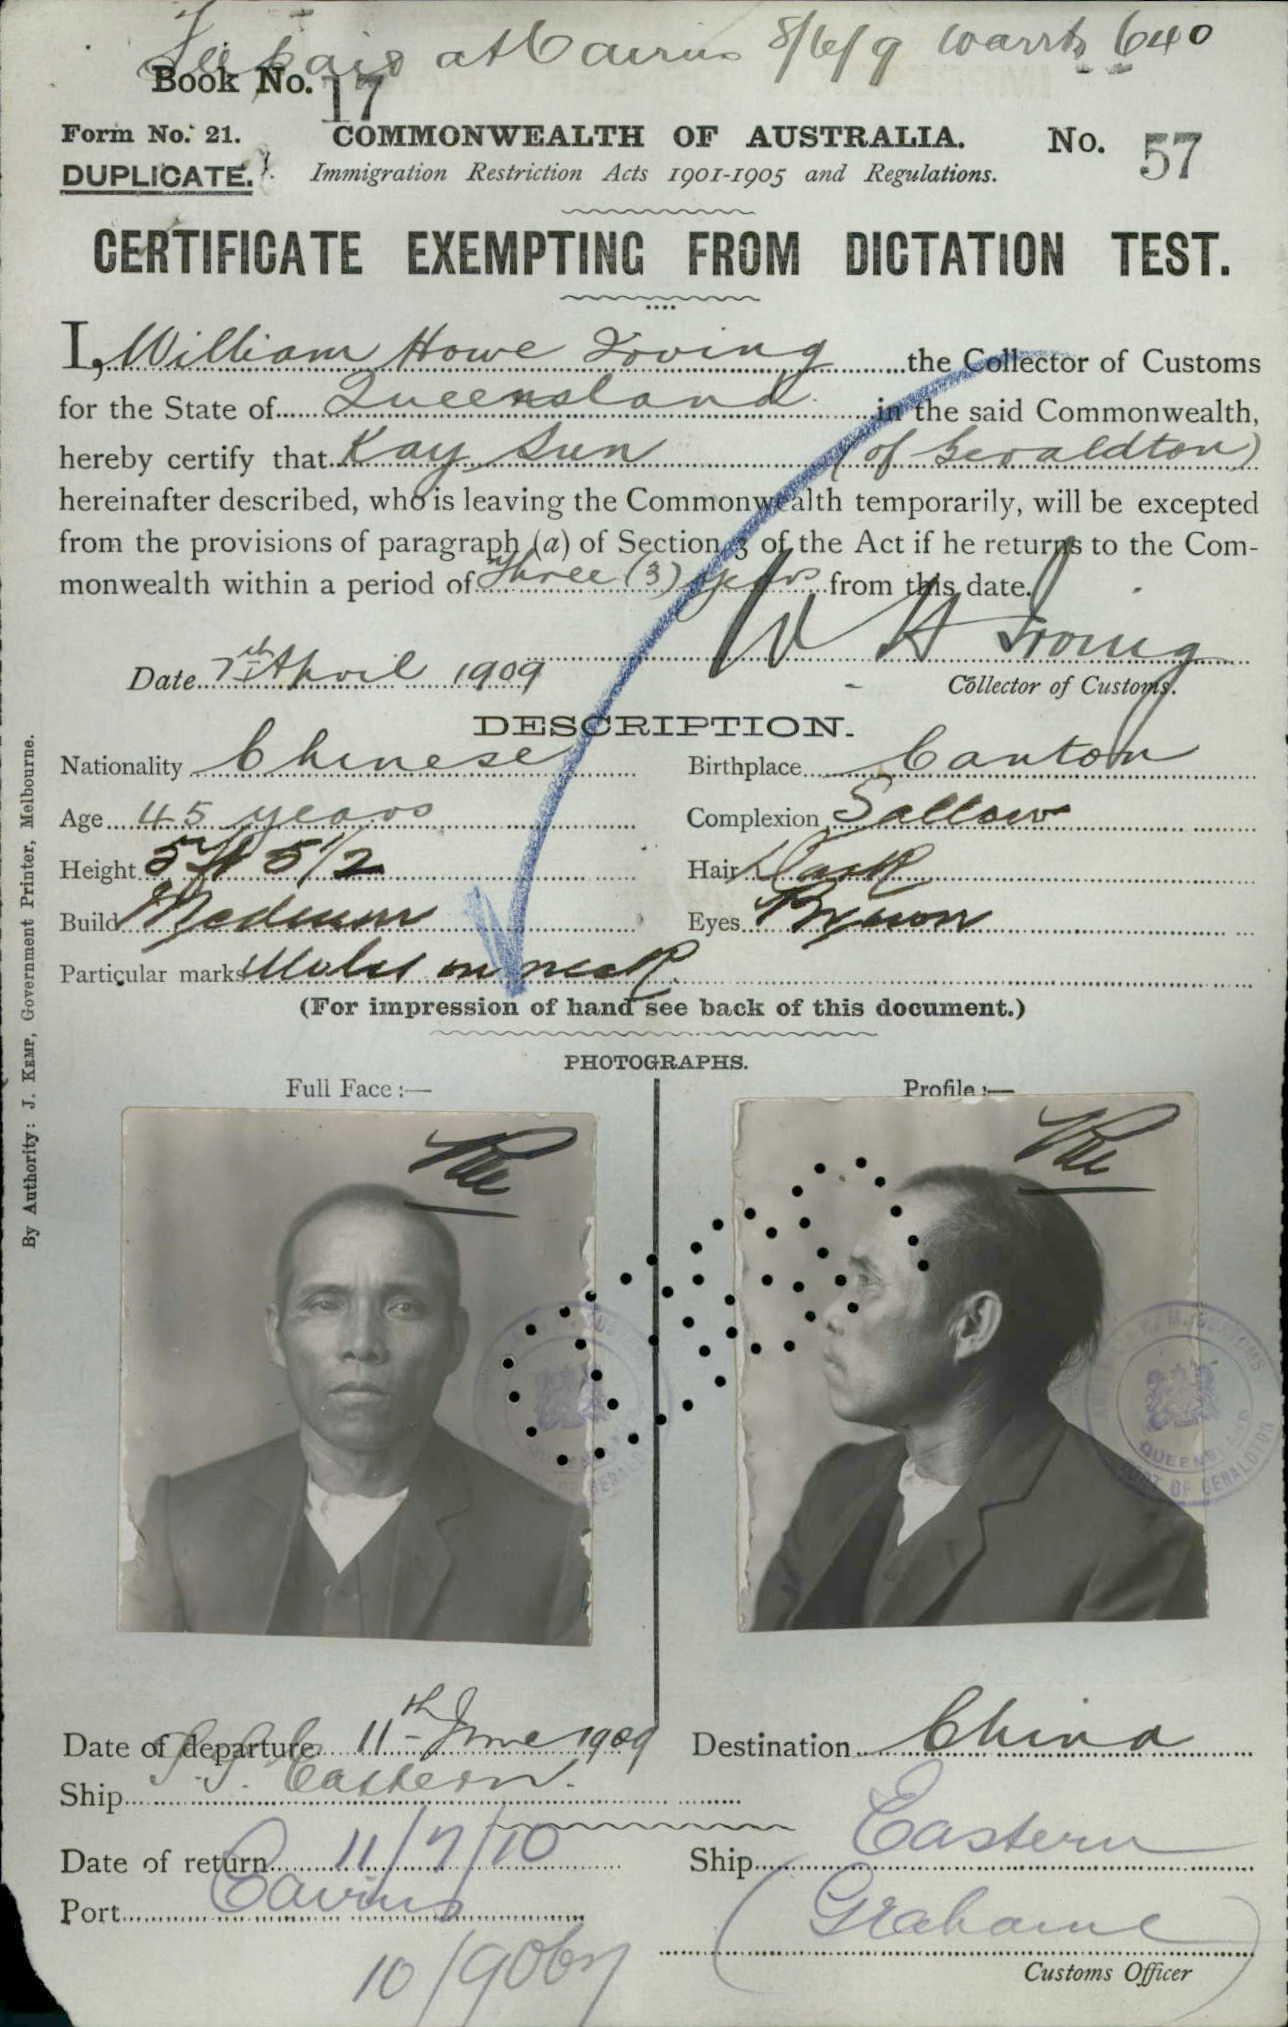 Fee paid at Cairns 8/6/9 Warrts 640
Book No. 17
Form No. 21. COMMONWEALTH OF AUSTRALIA. No. 57
DUPLICATE. Immigration Restriction Acts 1901-1905 and Regulations.
CERTIFICATE EXEMPTING FROM DICTATION TEST.
I, William Howe Irving the Collector of Customs
for the State of Queensland in the said Commonwealth,
hereby certify that Kay Sun (of Geraldton)
hereinafter described, who is leaving the Commonwealth temporarily, will be excepted
from the provisions of paragraph (a) of Section 3 of the Act if he returns to the Com-
monwealth within a period of Three (3) years from this date.
W H Irving
Date 7th April 1909 Collector of Customs.
DESCRIPTION.
Nationality Chinese Birthplace Canton
Age 45 years Complexion Sallow
Height 5 ft 5 1/2 Hair Dark
Build Medium Eyes Brown
Particular marks Moles on neck
(For impression of hand see back of this document.)
PHOTOGRAPHS.
Full Face :— Profile :—
QUEENSLAND
PORT OF GERALDTON
Date of departure 11th June 1909 Destination China
Ship S.S. Eastern.
Date of return 11/7/10 Ship Eastern
Port Cairns Grahame
Customs Officer
By Authority: J. KEMP, Government Printer, Melbourne.